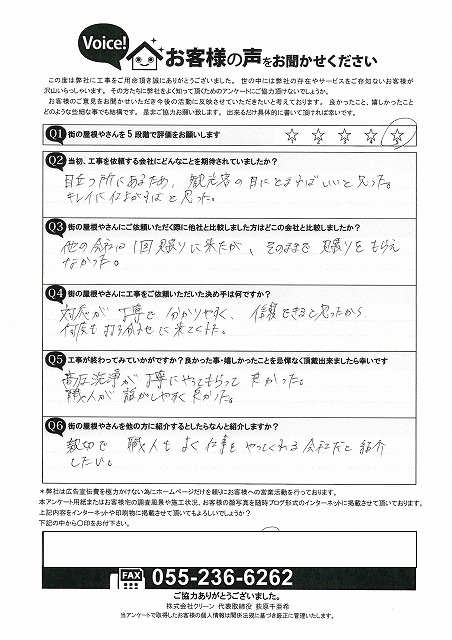 Voice!
お客様の声をお聞かせください
この度は弊社に工事をご用命頂き誠にありがとうございました。 世の中には弊社の存在やサービスをご存知ないお客様が
沢山いらっしゃいます。 その方たちに弊社をよく知って頂くためのアンケートにご協力頂けないでしょうか。
お客様のご意見をお聞かせいただき今後の活動に反映させていただきたいと考えております。 良かったこと、嬉しかったこと
どのような些細な事でも結構です。 是非ご協力お願い致します。 出来るだけ具体的に書いて頂ければ幸いです。
Q1 街の屋根やさんを5段階で評価をお願いします
Q2 当初、工事を依頼する会社にどんなことを期待されていましたか?
目立つ所にあるため、観光客の目にとまればいいと思った。
キレイに仕上がればと思った。
Q3 街の屋根やさんにご依頼いただく際に他社と比較しました方はどこの会社と比較しましたか?
他の会社は1回見積りに来たが、そのままで見積りをもらえ
なかった。
Q4 街の屋根やさんに工事をご依頼いただいた決め手は何ですか?
対応が丁寧で分かりやすく、信頼できると思ったから
何度も打ち合わせに来てくれた。
Q5 工事が終わってみていかがですか?良かった事・嬉しかったことを忌憚なく頂戴出来ましたら幸いです
高圧洗浄が丁寧にやってもらって良かった。
職人が話がしやすく良かった。
Q6 街の屋根やさんを他の方に紹介するとしたらなんと紹介しますか?
親切で職人もよく仕事をやってくれる会社だと紹介
したい。
*弊社は広告宣伝費を極力かけない為にホームページだけを頼りにお客様への営業活動を行っております。
本アンケート用紙またはお客様宅の調査風景や施工状況、お客様の顔写真を随時ブログ形式のインターネットに掲載させて頂いております。
上記内容をインターネットや印刷物に掲載させて頂いてもよろしいでしょうか?
下記の中から〇印をお付下さい。
FAX 055-236-6262
ご協力ありがとうございました。
株式会社クリーン 代表取締役 萩原千亜希
当アンケートで取得したお客様の個人情報は関係法規に基づき厳正に管理いたします。